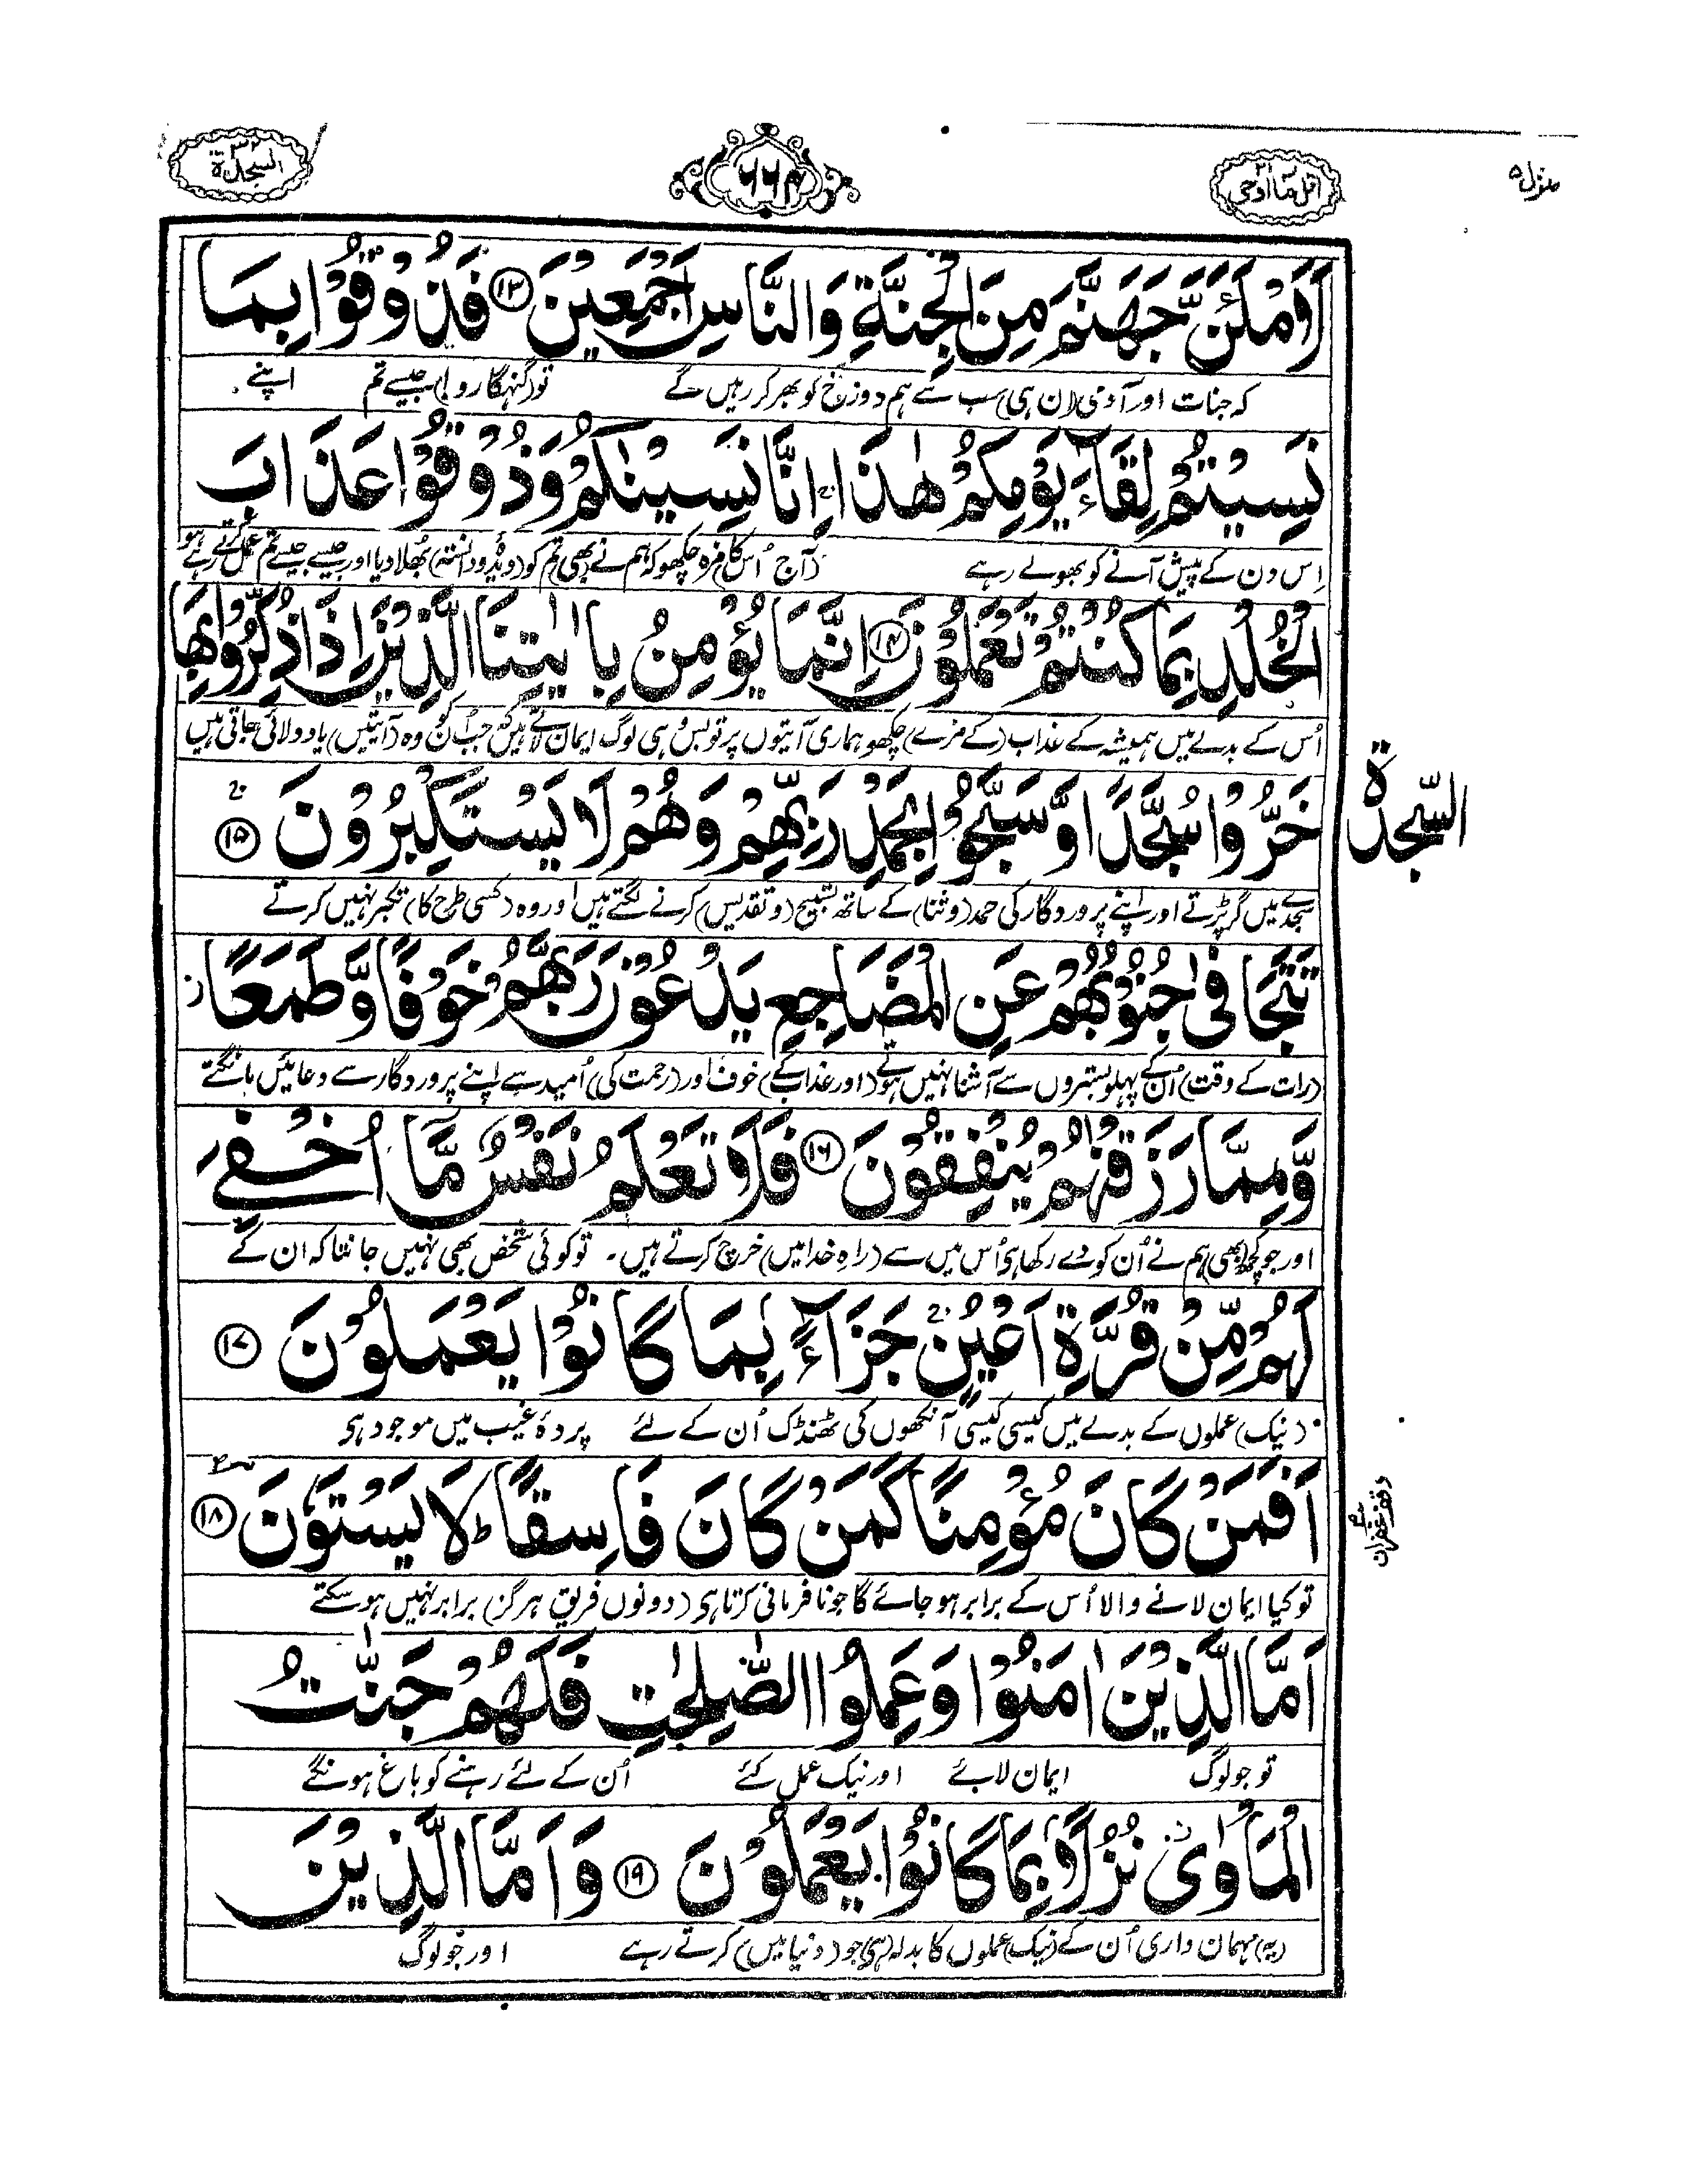 منزل ۵
اتل ما اوحی ۲۱
۶۶۴
السجدة ۳۲
لَاَمْلَـَٔنَّ جَهَنَّمَ مِنَ الْجِنَّةِ وَالنَّاسِ اَجْمَعِيْنَ ۝۱۳ فَذُوْقُوْا بِمَا
کہ جنات اور آدمی (ان ہی) سب سے ہم دوزخ کو بھر کر رہیں گے تو (گنہگارو!) جیسے تم اپنے
نَسِيْتُمْ لِقَآءَ يَوْمِكُمْ هٰذَا ۚ اِنَّا نَسِيْنٰكُمْ وَذُوْقُوْا عَذَابَ
اِس دن کے پیش آنے کو بھولے رہے (آج) اُس کا مزہ چکھو کہ ہم نے (بھی) تم کو (دیدہ و دانستہ) بھلا دیا اور جیسے جیسے تم عمل کرتے رہے ہو
الْخُلْدِ بِمَا كُنْتُمْ تَعْمَلُوْنَ ۝۱۴ اِنَّمَا يُؤْمِنُ بِاٰيٰتِنَا الَّذِيْنَ اِذَا ذُكِّرُوْا بِهَا
اُس کے بدلے میں ہمیشہ کے عذاب (کے مزے) چکھو ہماری آیتوں پر تو بس وہی لوگ ایمان لاتے ہیں کہ جب اُن کو وہ (آیتیں) یاد دلائی جاتی ہیں
خَرُّوْا سُجَّدًا وَّسَبَّحُوْا بِحَمْدِ رَبِّهِمْ وَهُمْ لَا يَسْتَكْبِرُوْنَ ۝۱۵
السّجدة
سجدے میں گر پڑتے اور اپنے پروردگار کی حمد (و ثنا) کے ساتھ تسبیح (و تقدیس) کرنے لگتے ہیں اور وہ (کسی طرح کا) تکبر نہیں کرتے
تَتَجَافٰى جُنُوْبُهُمْ عَنِ الْمَضَاجِعِ يَدْعُوْنَ رَبَّهُمْ خَوْفًا وَّطَمَعًا ز
(رات کے وقت) اُن کے پہلو بستروں سے آشنا نہیں ہوتے (اور عذاب کے) خوف اور (رحمت کی) اُمید سے اپنے پروردگار سے دعائیں مانگتے
وَّمِمَّا رَزَقْنٰهُمْ يُنْفِقُوْنَ ۝۱۶ فَلَا تَعْلَمُ نَفْسٌ مَّا اُخْفِيَ
اور جو کچھ (بھی) ہم نے اُن کو دے رکھا ہی اُس میں سے (راہِ خدا میں) خرچ کرتے ہیں ۔ تو کوئی شخص بھی نہیں جانتا کہ ان کے
لَهُمْ مِّنْ قُرَّةِ اَعْيُنٍ ۚ جَزَآءً بِمَا كَانُوْا يَعْمَلُوْنَ ۝۱۷
(نیک) عملوں کے بدلے میں کیسی کیسی آنکھوں کی ٹھنڈک اُن کے لئے پردۂ غیب میں موجود ہی
اَفَمَنْ كَانَ مُؤْمِنًا كَمَنْ كَانَ فَاسِقًا ؕ لَا يَسْتَوٗنَ ۝۱۸
وقف غفران
تو کیا ایمان لانے والا اُس کے برابر ہو جائے گا جو نافرمانی کرتا ہی (دونوں فریق ہرگز) برابر نہیں ہو سکتے
اَمَّا الَّذِيْنَ اٰمَنُوْا وَعَمِلُوا الصّٰلِحٰتِ فَلَهُمْ جَنّٰتُ
تو جو لوگ ایمان لائے اور نیک عمل کئے اُن کے لئے رہنے کو باغ ہونگے
الْمَاْوٰى ز نُزُلًا بِمَا كَانُوْا يَعْمَلُوْنَ ۝۱۹ وَاَمَّا الَّذِيْنَ
(یہ) مہمان داری اُن کے (نیک) عملوں کا بدلہ (ہی) جو (دنیا میں) کرتے رہے اور جو لوگ